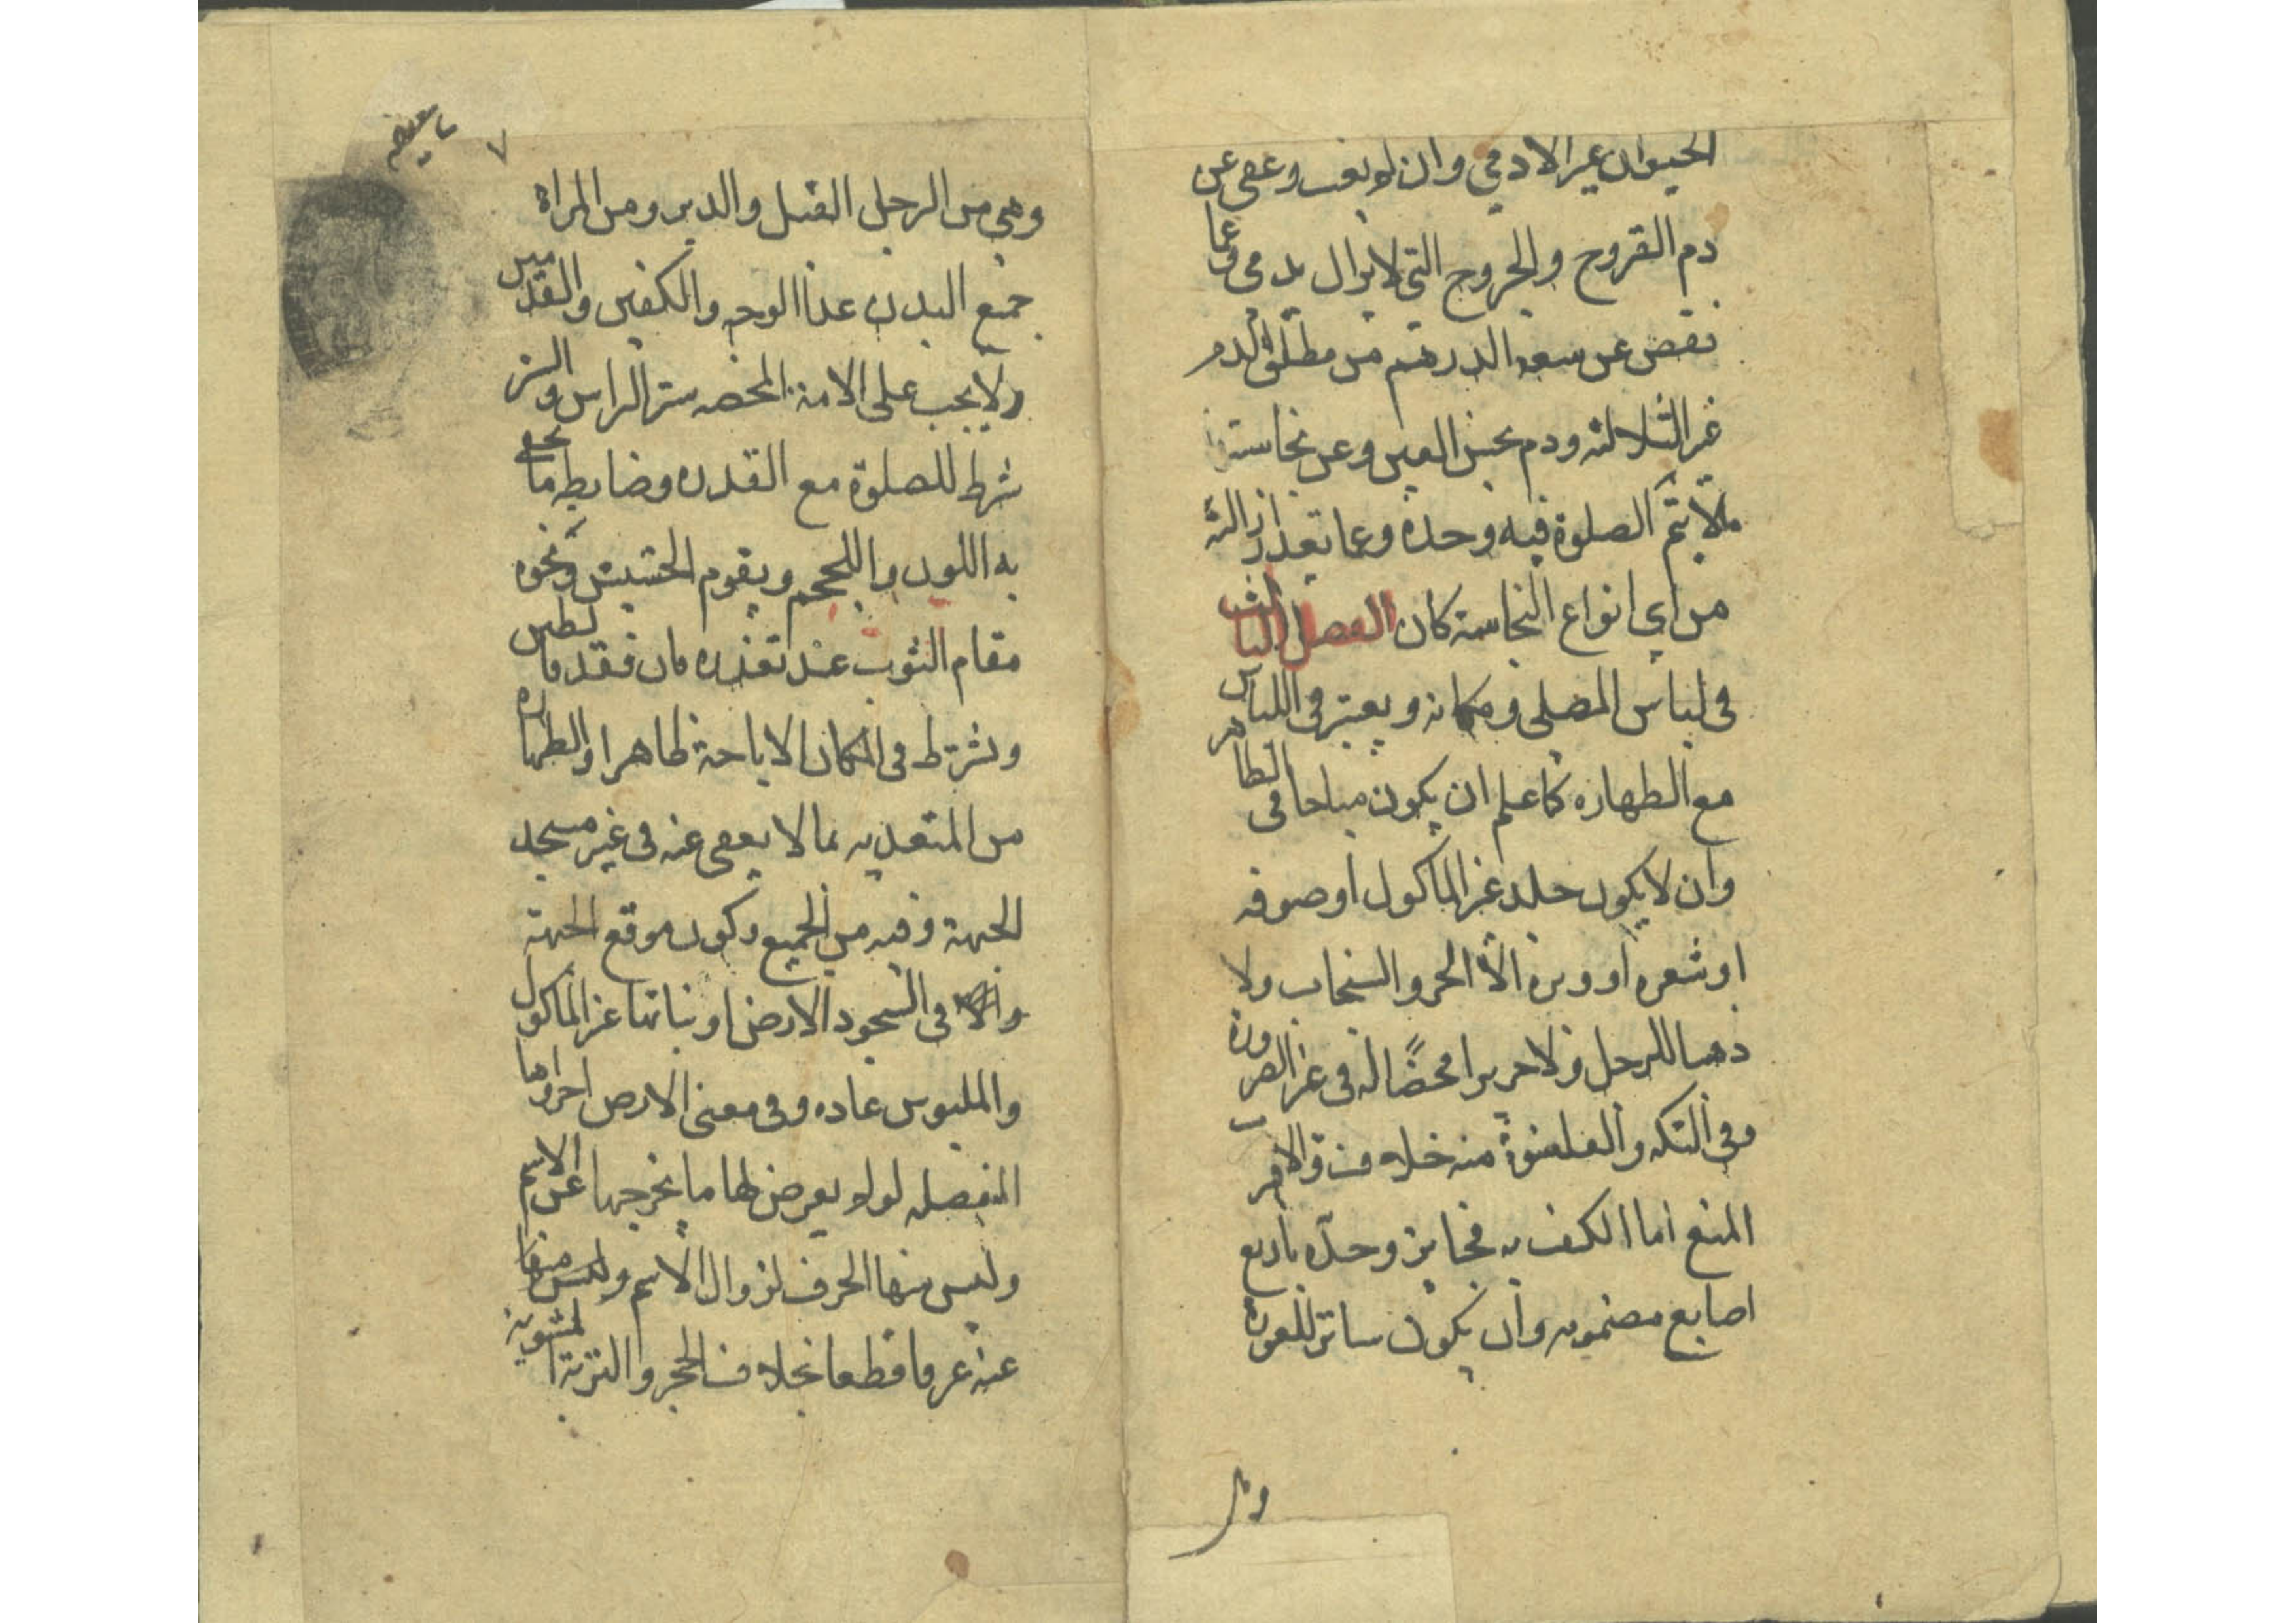 الحيوان غير الادمي وان لم يغب وعفي عن
دم القروح والجروح التي لا يزال يدمي وعما
نقص عن سعة الدرهم من مطلق الدم
غير الثلاثة ودم نجس العين وعن نجاسة
ما لا يتم الصلوة فيه وحده وعما تعذر ازالته
من اي انواع النجاسة كان الفصل الثالث
في لباس المصلي ومكانه ويعتبر في اللباس
مع الطهاره كما علم ان يكون مباحا في الظاهر
وان لا يكون جلد غير الماكول او صوفه
او شعره او وبره الا الخز والسنجاب ولا
ذهبا للرجل ولا حريرا محضا له في غير الضرورة
وفي التكه والقلنسوة منه خلاف والاقرب
المنع اما الكف به فجايز وحده باربع
اصابع مضمومه وان يكون ساترا للعورة
وهي
٧
وهي من الرجل القبل والدبر ومن المراة
جميع البدن عدا الوجه والكفين والقدمين
ولا يجب على الامة المحضه ستر الراس والستر
شرط للصلوة مع القدره وضابطه ما يخفي
به اللون والحجم ويقوم الحشيش ونحوه
مقام الثوب عند تعذره فان فقد فالطين
ويشترط في المكان الاباحة ظاهرا والطهاره
من المتعديه مما لا يعفى عنه في غير مسجد
الجبهة وفيه من الجميع وكون موقع الجبهة
في السجود الارض او نباتها غير الماكول
والملبوس عاده وفي معنى الارض اجزاوها
المنفصله لو لم يعرض لها ما يخرجها عن الاسم
وليس منها الخزف لزوال الاسم
عنه عرفا قطعا بخلاف الحجر والتربة المشوية